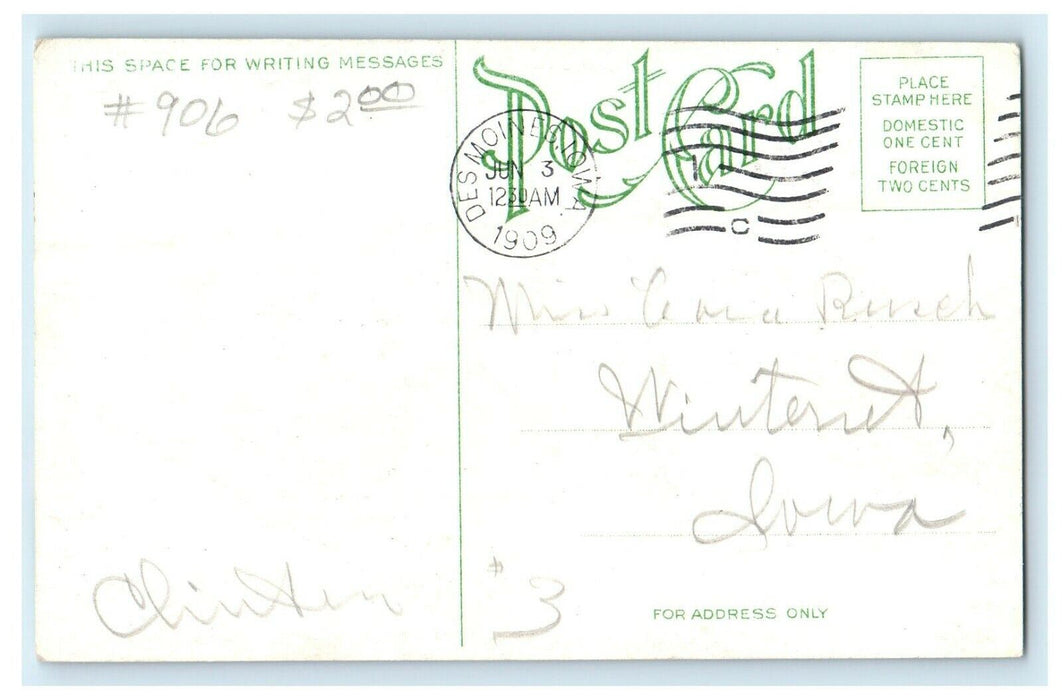 THIS SPACE FOR WRITING MESSAGES
# 906 $2.00
Clinton
Post Card
DES MOINES, IOWA
JUN 3
1230AM
1909
PLACE
STAMP HERE
DOMESTIC
ONE CENT
FOREIGN
TWO CENTS
Miss Cora Rusch
Winterset,
Iowa
$3
FOR ADDRESS ONLY